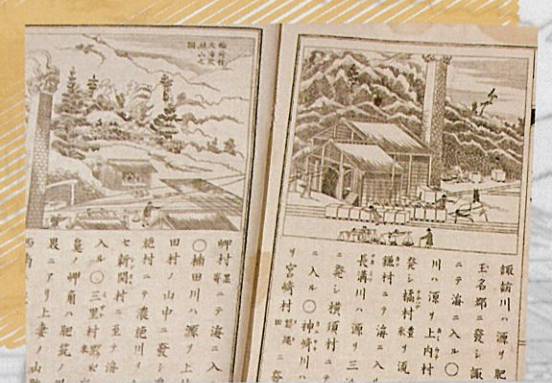 諏訪川ハ源ヲ肥
玉名郡ニ發シ諏
ニテ海ニ入ル〇
川ハ源ヲ上内村
發シ橘村ヲ流
鎌村ニテ海ニ入
長溝川ハ源ヲ三
ニ發シ横須村ニテ
ニ入ル〇神崎川ハ
ヲ宮崎村
岬村ニテ海ニ入
〇楠田川ハ源ヲ上
田村ノ山中ニ發シ
村ニテ濃 川ト
セ新開村ニ至テ海
入ル〇三里村黒
ノ岬角ハ肥筑ノ
界ニアリ上妻ノ山